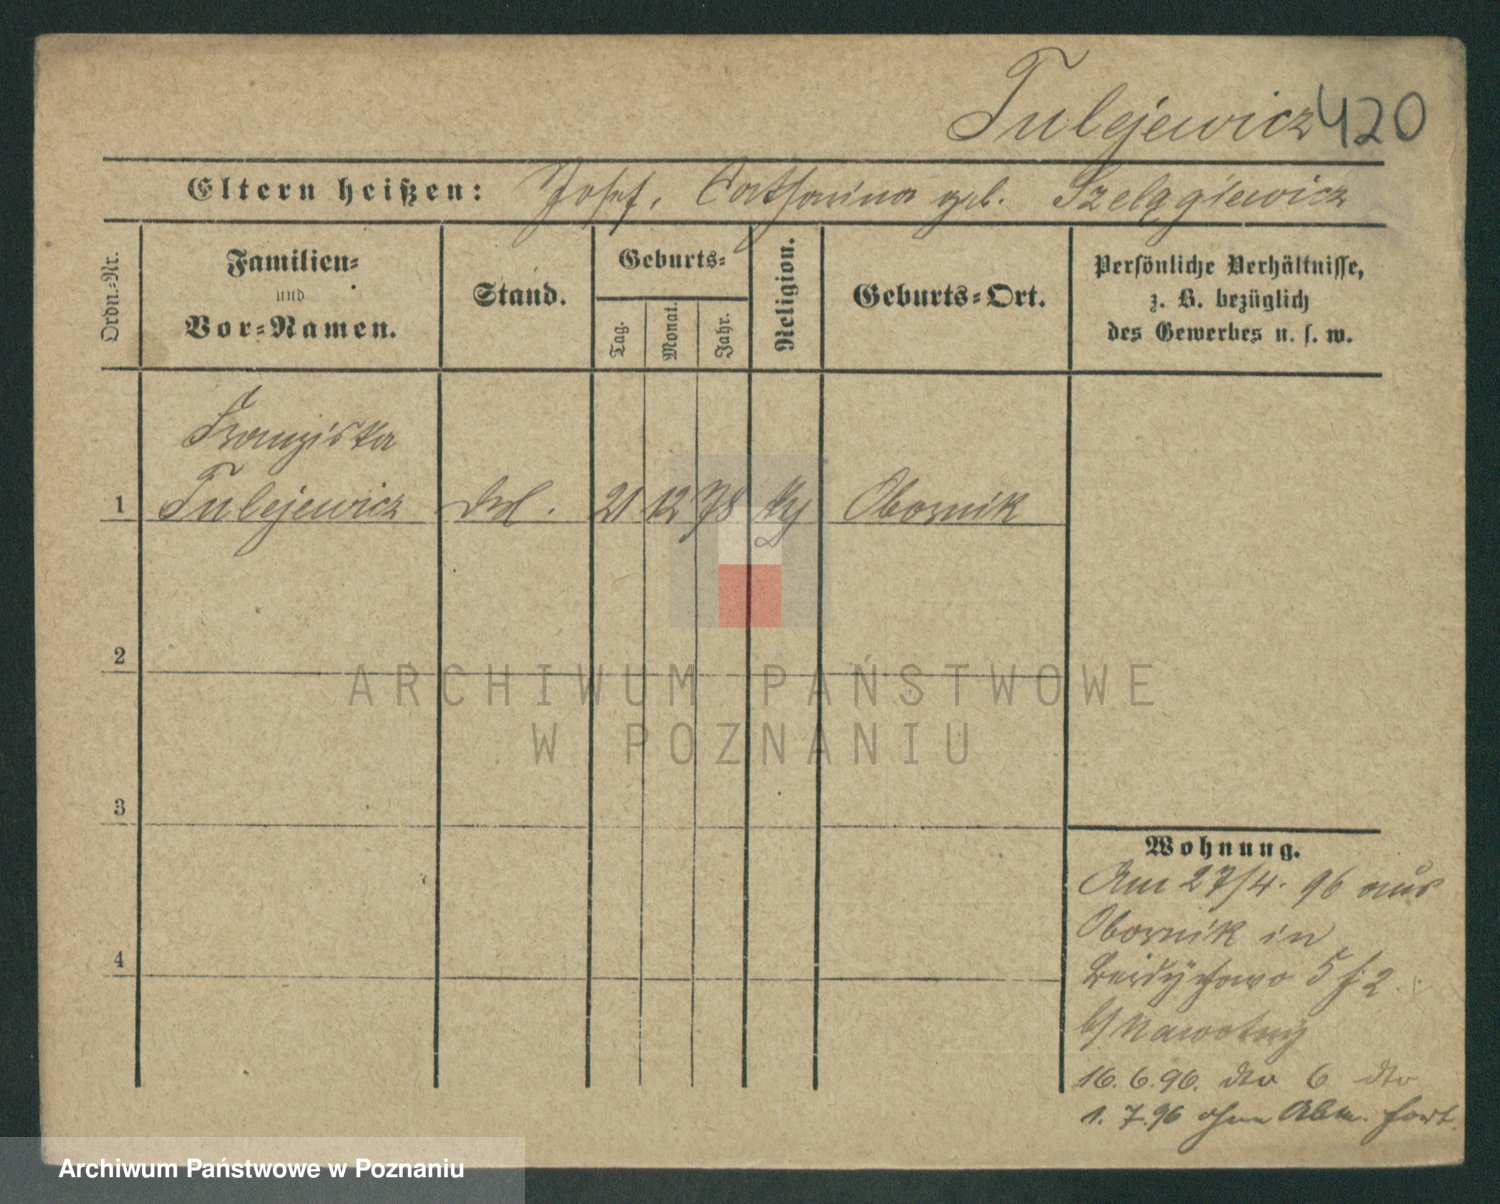 Tulejewicz 420
Eltern heißen: Josef, Catharina geb. Szelągiewicz
Ordn.-Nr.
Familien-
und
Vor-Namen.
Stand.
Geburts-
Tag.
Monat.
Jahr.
Religion.
Geburts-Ort.
Persönliche Verhältnisse,
z. B. bezüglich
des Gewerbes u. s. w.
Franziska
1 Tulejewicz 21 12 78 Obornik
2
3
4
Wohnung.
Am 27/4. 96 aus
Obornik in
5 2
b/ Nawotny
16. 6. 96. dto 6 dto
1. 7. 96 ohne Abm. fort.
ARCHIWUM PAŃSTWOWE
W POZNANIU
Archiwum Państwowe w Poznaniu